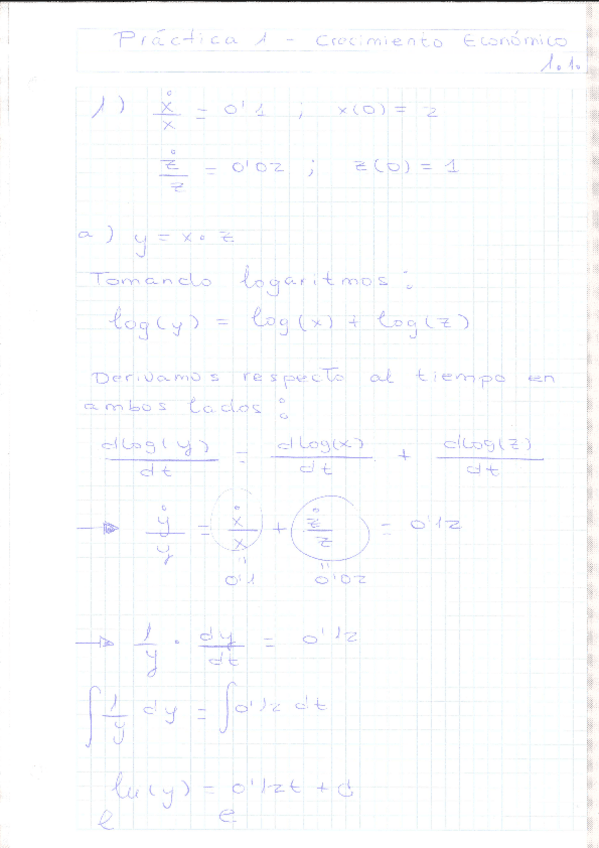 Práctica 1 - Crecimiento Económico
1.1.
1) ẋ/x = 0'1 ; x(0) = 2
ż/z = 0'02 ; z(0) = 1
a) y = x · z
Tomando logaritmos:
log(y) = log(x) + log(z)
Derivamos respecto al tiempo en
ambos lados:
dlog(y)/dt = dlog(x)/dt + dlog(z)/dt
→ ẏ/y = ẋ/x + ż/z = 0'12
0'1 0'02
→ 1/y · dy/dt = 0'12
∫ 1/y dy = ∫ 0'12 dt
ln(y) = 0'12t + C
e e